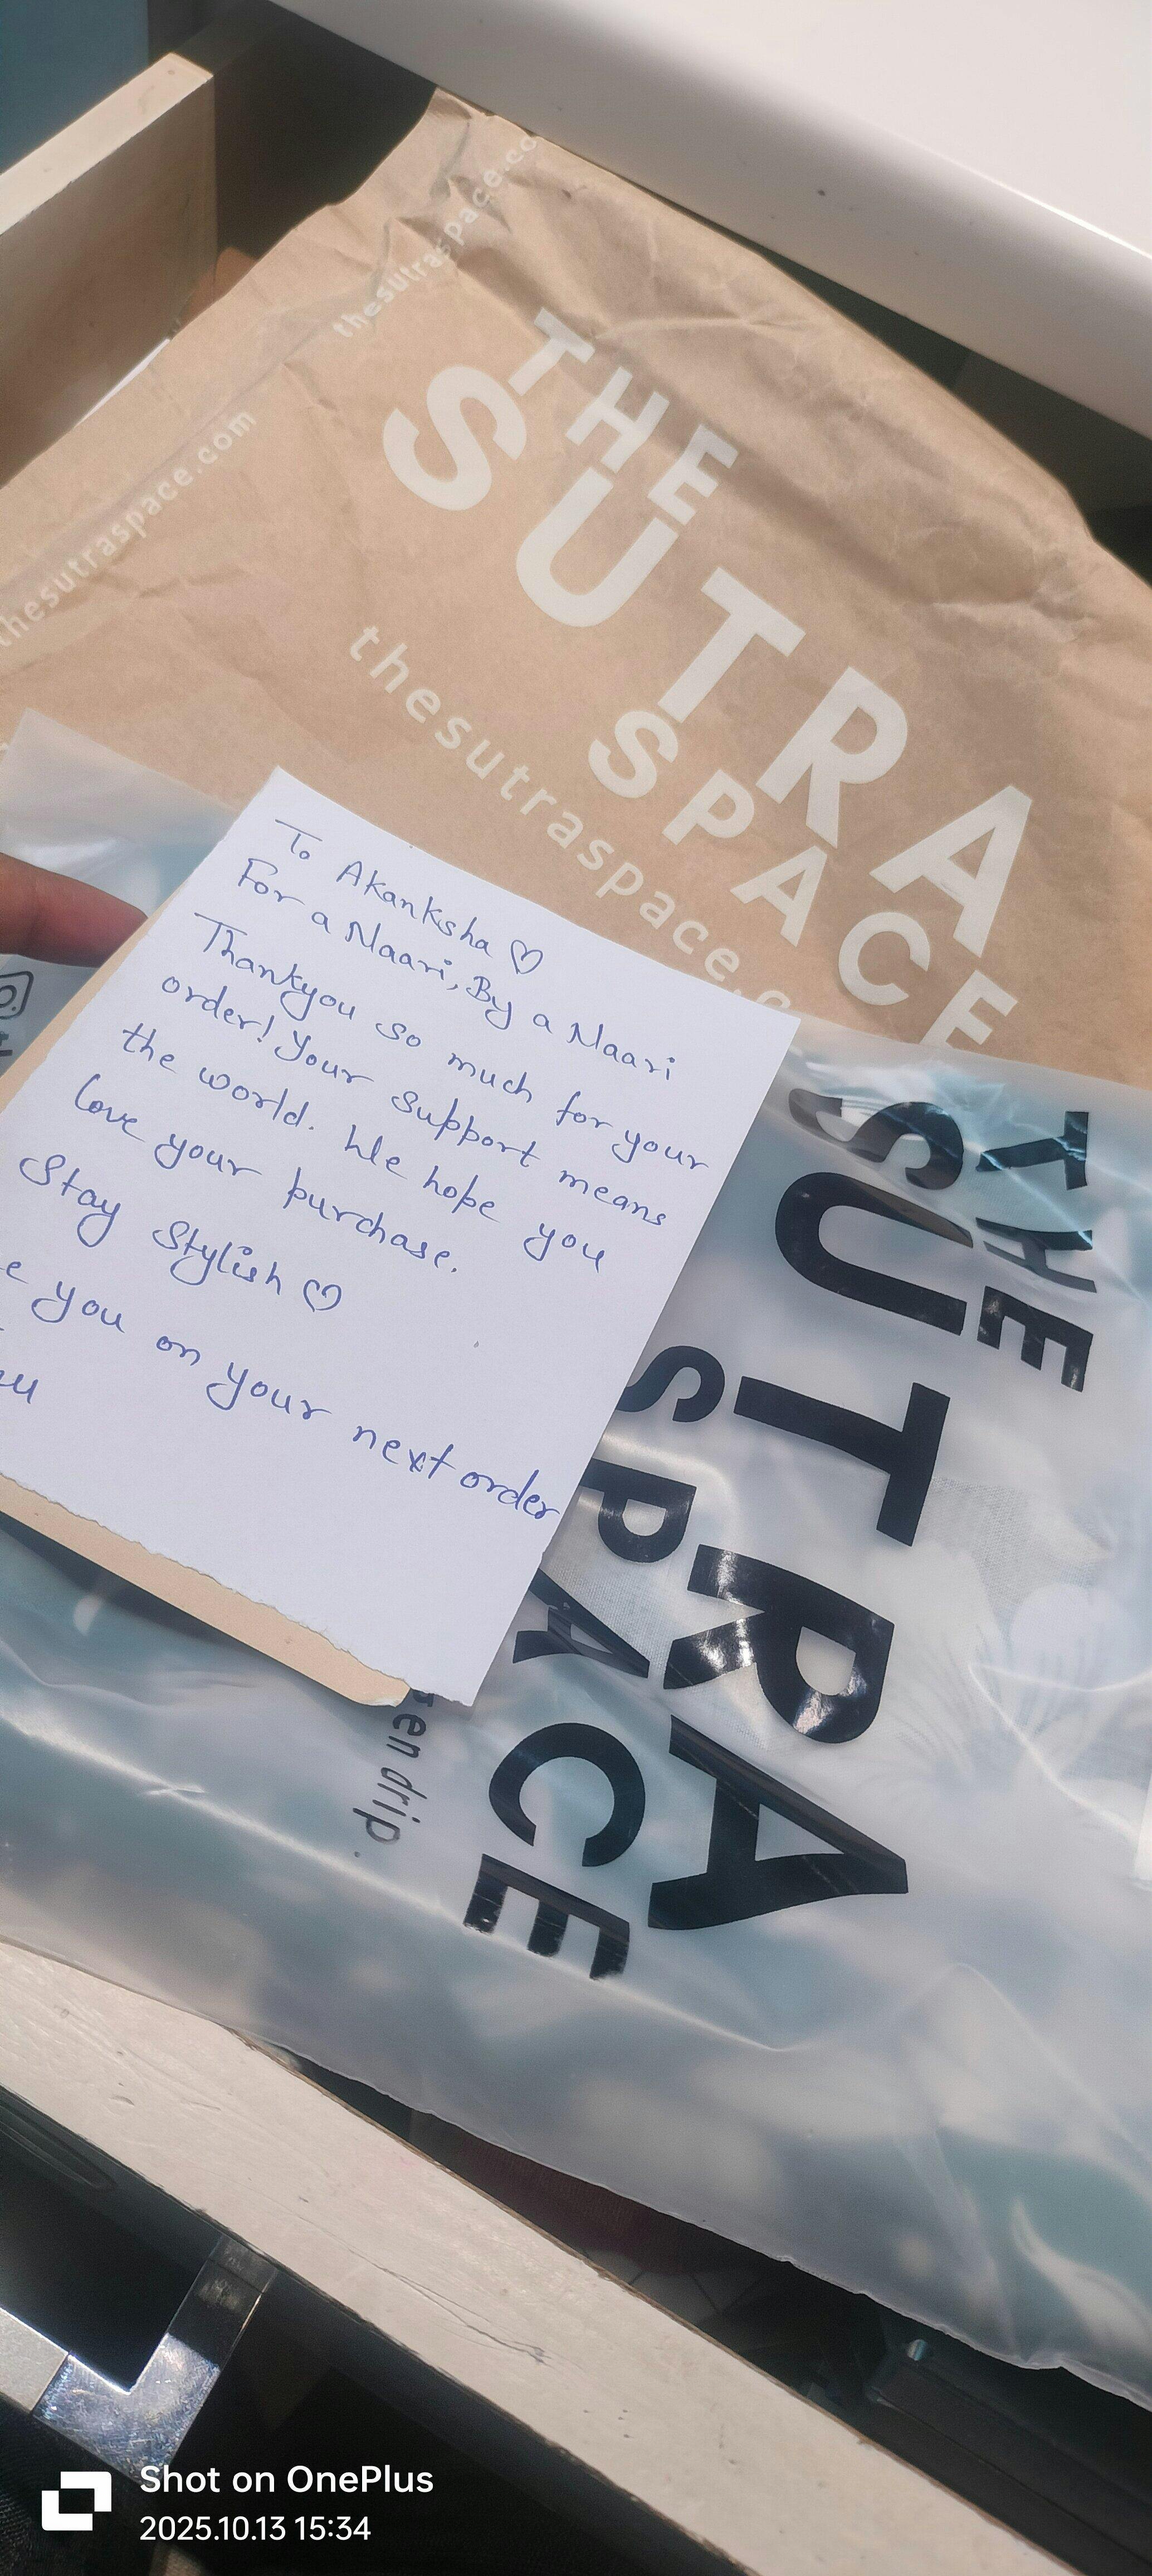 thesutraspace.co
thesutraspace.com
THE
SUTRA
SPACE
thesutraspace.c
To Akanksha ♡
For a Naari, By a Naari
Thankyou so much for your
order! Your support means
the world. We hope you
love your purchase.
Stay Stylish ♡
e you on your next order
THE
SUTRA
SPACE
en drip.
Shot on OnePlus
2025.10.13 15:34